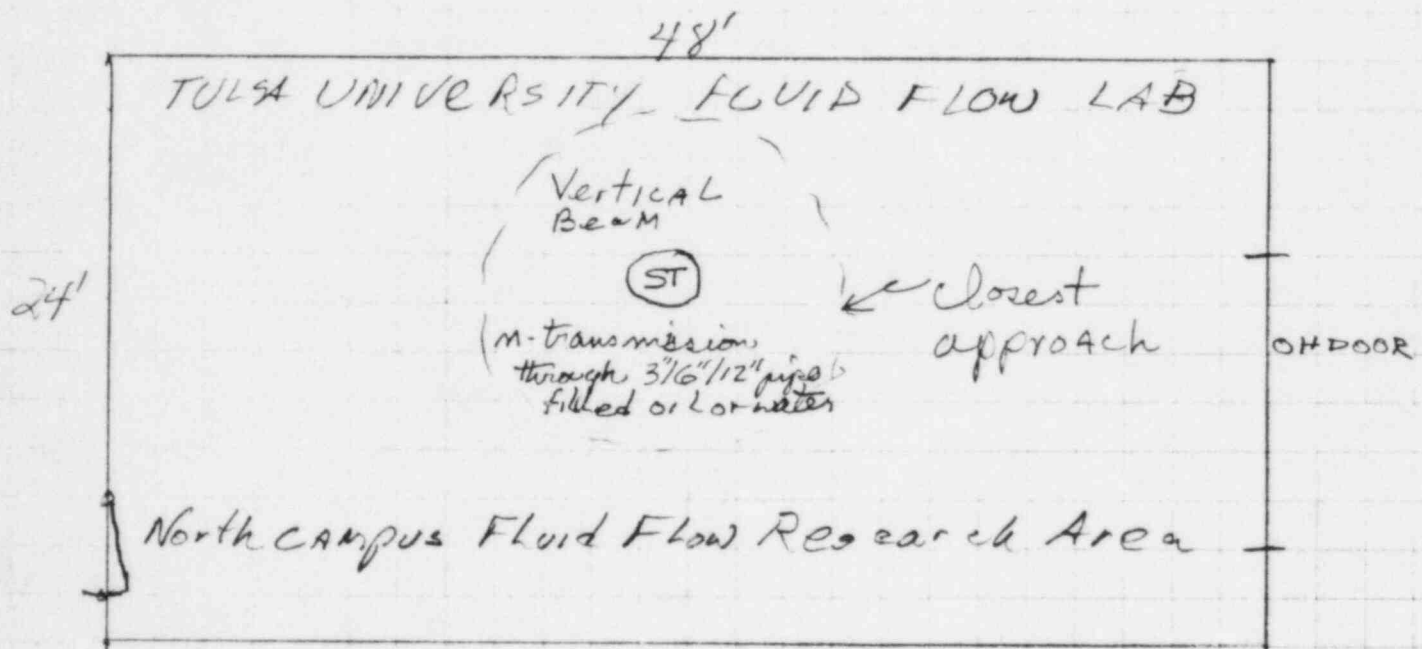 48'
TULSA UNIVERSITY FLUID FLOW LAB
Vertical
Beam
ST
24'
Closest
approach
n-transmission
through 3"/6"/12" pipe
filled oil or water
OHDOOR
North Campus Fluid Flow Research Area